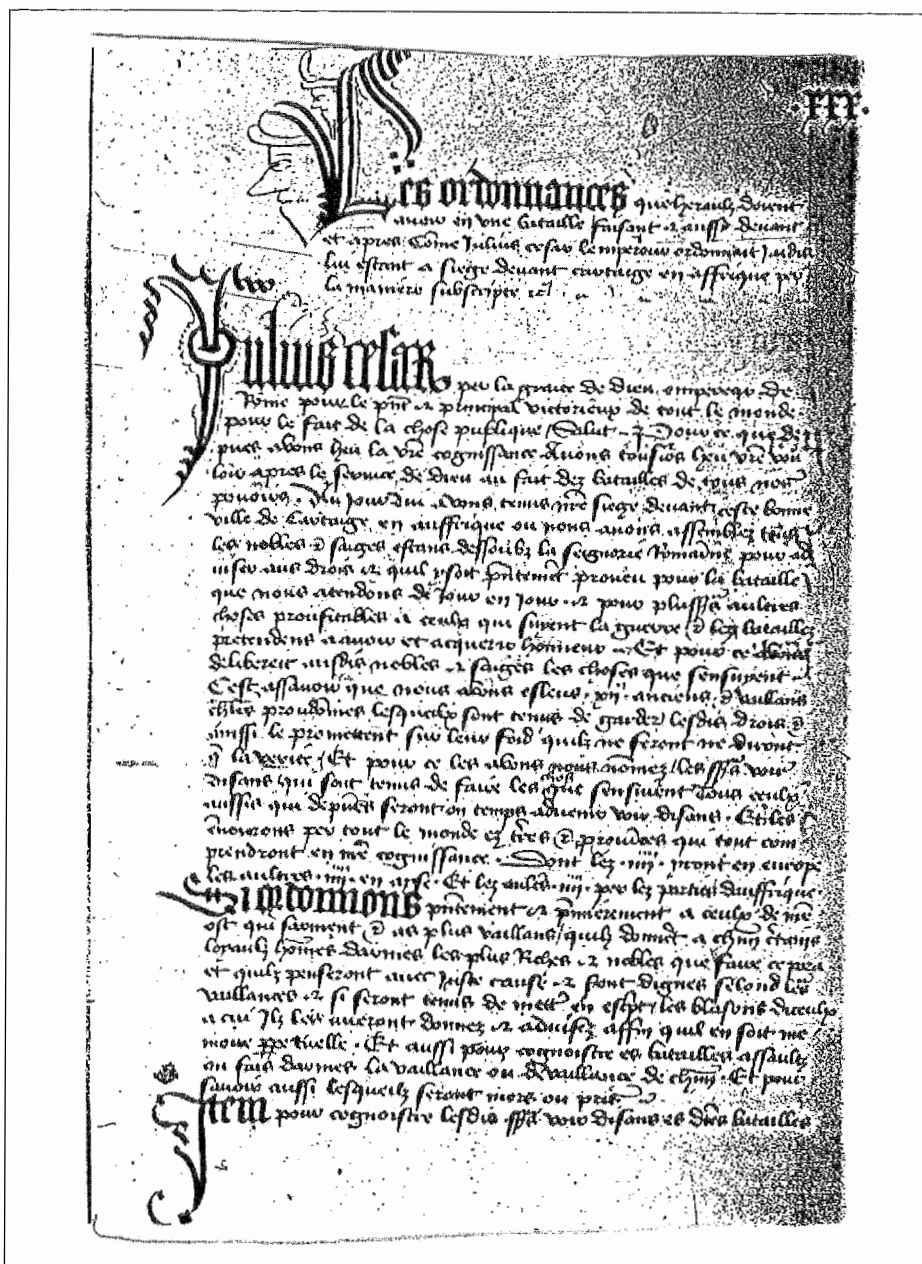 .xxx.
Les ordonnances que heraulz doivent
avoir en une bataille faisant et aussi devant
et apres Come Julius cesar lempereur ordonnait Jadis
lui estant a siege devant cartaige en affrique per
la maniere subscripte
Julius cesar per la grace de dieu empereur de
Rome pour le pnt et principal victorieux de tout le monde
pour le fait de la chose publique Salut Pour ce que de
pues avons heu la vre cognissance Avons tousios heu vre vou
loir apres le service de dieu au fait dez batailles de tous nos
povoirs Au Jour dui avons tenus nre siege devant ceste bonne
ville de Cartaige en auffrique ou nous avons assemblez tous
les nobles et saiges estans dessoubz la seignorie Romaine pour ad
viser aus drois et quil y soit pntemet proveu pour la bataille
que nous atendons de Jour en Jour et pour plusss aultres
choses proufitables a ceulx qui suyent la guerre et lez batailles
pretendens a avoir et acquerir honneur Et pour ce avons
delibereit ausdis nobles et saiges les choses que sensuyent
Cest assavoir que nous avons esleus .xii. anciens et vaillans
chlrs proudomes lesqueilx sont tenus de garder lesdis drois et
aussi le promettent sur leur foid quilz ne feront ne diront
q la verite Et pour ce les avons nous nomez les sss voir
disans qui sont tenus de faire les choses que sensuient Tous ceulx
aussis qui depues seront on temps advenir voir disans Et les
envoirons per tout le monde ez tres et provices qui tout com
prendront en nre cognissance Dont lez .iiii. iront en europe
les aultres .iiii. en ayse Et lez aultres .iiii. per lez parties dauffrique
Si ordonnons pntement et pmierement a ceulx de nre
ost qui sarment et as plus vaillans quilz donnet a chun certains
loyaulz homes darmes les plus Riches et nobles que faire ce pora
et quilz penseront avec Juste cause et sont dignes selond les
vaillances et si seront tenus de mettre en escpt les blasons diceulx
a cui Ilz les averont donnez et advisez affin quil en soit me
moire ppetuelle Et aussi pour cognoistre es batailles assaulz
ou fais darmes la vaillance ou devaillance de chun Et pour
savoir aussi lesqueilz seront mors ou pris
Item pour cognoistre lesdis sss voir disans es dites batailles